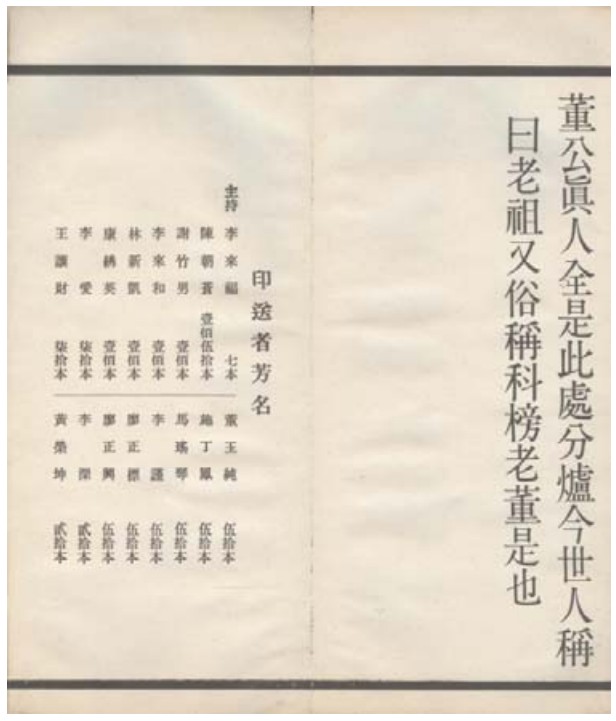 董公眞人全是此處分爐今世人稱
曰老祖又俗稱科榜老董是也
印送者芳名
主持 李來福 七本
陳朝蒼 壹佰伍拾本
謝竹男 壹佰本
李來和 壹佰本
林新凱 壹佰本
康綉英 壹佰本
李愛 柒拾本
王讓財 柒拾本
董玉純 伍拾本
施丁鳳 伍拾本
馬瑤琴 伍拾本
李謹 伍拾本
廖正標 伍拾本
廖正興 伍拾本
李傑 貳拾本
黃榮坤 貳拾本